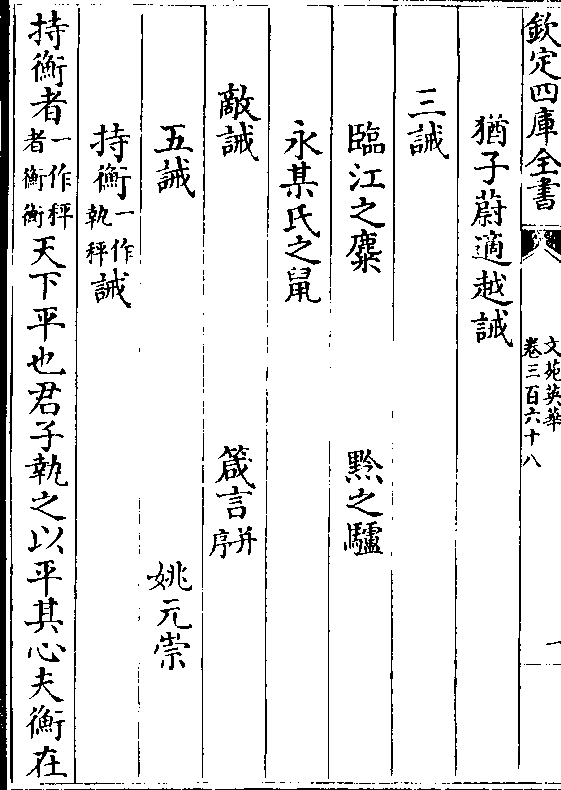 欽定四庫全書
文苑英華
卷三百六十八
一
猶子蔚適越誡
三誡
臨江之麋　黔之驢
永某氏之鼠
敵誡　箴言并序
五誡　姚元崇
持衡一作執秤誡
持衡者一作秤者衡衡天下平也君子執之以平其心夫衡在